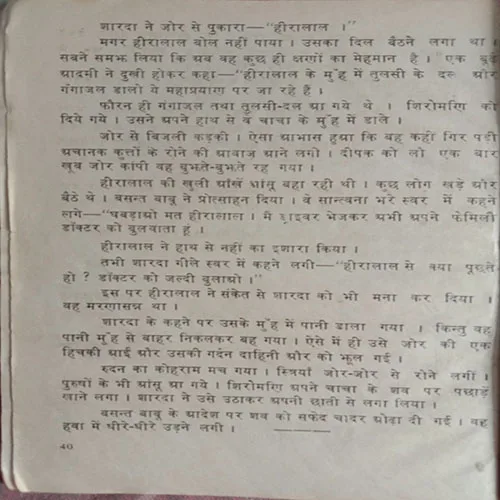 शारदा ने जोर से पुकारा—"हीरालाल ।"
मगर हीरालाल बोल नहीं पाया । उसका दिल बैठने लगा था ।
सबने समझ लिया कि अब वह कुछ ही क्षणों का मेहमान है । एक बूढ़े
आदमी ने दुखी होकर कहा—"हीरालाल के मुँह में तुलसी के दल और
गंगाजल डालो ये महाप्रयाण पर जा रहे हैं ।
फौरन ही गंगाजल तथा तुलसी-दल आ गये थे । शिरोमणि को
दिये गये । उसने अपने हाथ से वे चाचा के मुँह में डाले ।
जोर से बिजली कड़की । ऐसा आभास हुआ कि वह कहीं गिर पड़ी
अचानक कुत्तों के रोने की आवाज आने लगी । दीपक की लो एक बार
खूब जोर कांपी वह बुझते-बुझते रह गया ।
हीरालाल की खुली आँखें आंसू बहा रही थी । कुछ लोग खड़े और
बैठे थे । बसन्त बाबू ने प्रोत्साहन दिया । वे सान्त्वना भरे स्वर में कहने
लगे—"घबड़ाओ मत हीरालाल । मैं ड्राइवर भेजकर अभी अपने फेमिली
डॉक्टर को बुलवाता हूं ।
हीरालाल ने हाथ से नहीं का इशारा किया ।
तभी शारदा गीले स्वर में कहने लगी—"हीरालाल से क्या पूछते
हो ? डॉक्टर को जल्दी बुलाओ ।"
इस पर हीरालाल ने संकेत से शारदा को भी मना कर दिया ।
वह मरणासन्न था ।
शारदा के कहने पर उसके मुँह में पानी डाला गया । किन्तु वह
पानी मुँह से बाहर निकलकर बह गया । ऐसे में ही उसे जोर की एक
हिचकी आई और उसकी गर्दन दाहिनी ओर को झूल गई ।
रुदन का कोहराम मच गया । स्त्रियाँ जोर-जोर से रोने लगीं ।
पुरुषों के भी आंसू आ गये । शिरोमणि अपने चाचा के शव पर पछाड़ें
खाने लगा । शारदा ने उसे उठाकर अपनी छाती से लगा लिया ।
बसन्त बाबू के आदेश पर शव को सफेद चादर ओढ़ा दी गई । वह
हवा में धीरे-धीरे उड़ने लगी ।
40